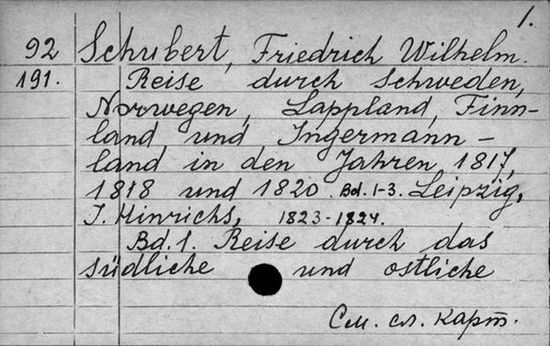 1.
92 Schubert, Friedrich Wilhelm.
191. Reise durch Schweden,
Norwegen, Lappland, Finn-
land und Ingermann-
land in den Jahren 1817,
1818 und 1820. Bd. 1-3. Leipzig,
J. Hinrichs, 1823-1824.
Bd. 1. Reise durch das
südliche und ostliche
См. сл. карт.